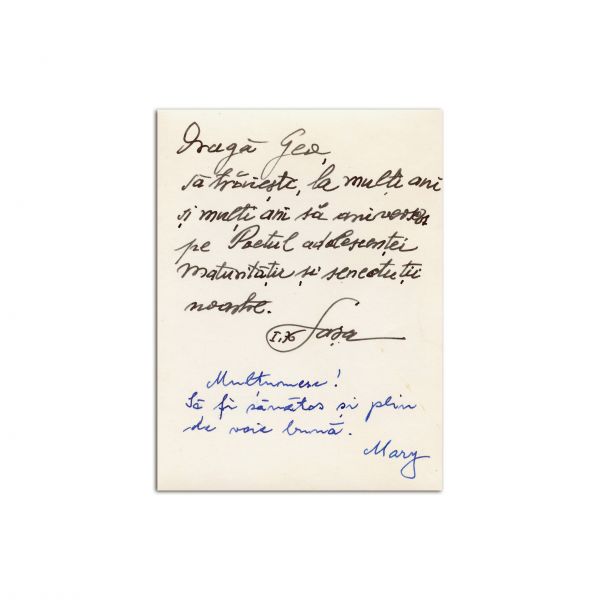 Dragă Geo,
să trăiești, la mulți ani
și mulți ani să aniversezi
pe Poetul adolescenței
maturității și senectuții
noastre.
I,76 Sașa
Mulțumesc!
Să fi sănătos și plin
de voie bună.
Mary